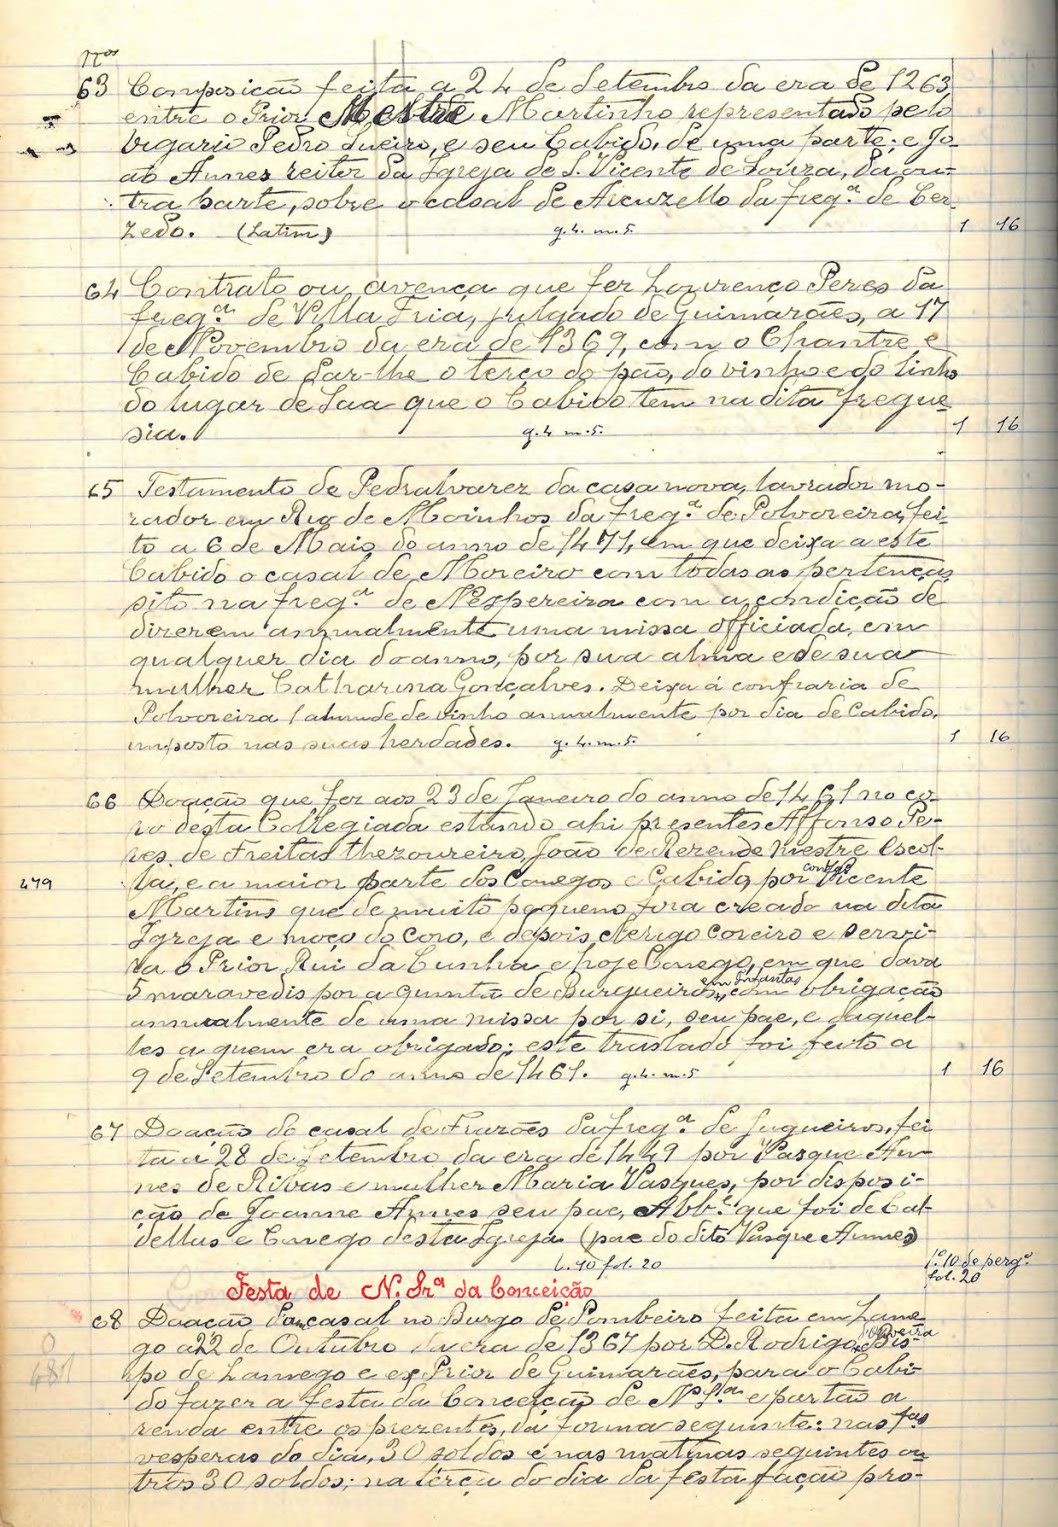 Nos
63 Composição feita a 24 de Setembro da era de 1263
entre o Prior Mestre Martinho representado pelo
vigario Pedro Sueiro, e seu Cabido, de uma parte; e Jo-
ão Annes reitor da Igreja de S. Vicente de Souza, da ou-
tra parte, sobre o casal de Arcuzello da freg.ª de Cer-
zedo. (Latim) g. 4. m. 5. 1 16
64 Contrato ou avença que fez Lourenço Peres da
freg.ª de Villa Fria, julgado de Guimarães, a 17
de Novembro da era de 1369, com o Chantre e
Cabido de dar-lhe o terço do pão, do vinho e do linho
do lugar de Saa que o Cabido tem na dita fregue-
sia. g. 4 m. 5. 1 16
65 Testamento de Pedralvarez da casa nova, lavrador mo-
rador em Rio de Moinhos da freg.ª de Polvoreira, fei-
to a 6 de Maio do anno de 1471, em que deixa a este
Cabido o casal de Moreiro com todas as pertenças
sito na freg.ª de Nespereira com a condição de
dizerem annualmente uma missa officiada, em
qualquer dia do anno, por sua alma e de sua
mulher Catharina Gonçalves. Deixa á confraria de
Polvoreira 1 almude de vinho annualmente por dia de Cabido,
imposto nas suas herdades. g. 4. m. 5. 1 16
66 Doação que fez aos 23 de Janeiro do anno de 1461 no co-
ro desta Collegiada estando ahi presentes Affonso Pe-
res de Freitas thezoureiro, João de Rezende Mestre Escol-
479 la, e a maior parte dos Conegos e Cabido, por Vicente
Martins que de muito pequeno fora creado na dita
Igreja e moço do Coro, e depois clerigo Coreiro e servi-
ra o Prior Rui da Cunha e hoje Conego, em que dava
em Infantas
5 maravedis por a quintã de Burgueiros, com obrigação
annualmente de uma missa por si, seu pae, e daquel-
les a quem era obrigado; este traslado foi feito a
9 de Setembro do anno de 1461. g. 4. m. 5 1 16
67 Doação do casal de Furzões da freg.ª de Jugueiros, fei
ta a 28 de Setembro da era de 1449 por Vasque An-
nes de Ribas e mulher Maria Vasques, por disposi-
ção de Joanne Annes seu pae, Abb.e que foi de Cal-
dellas e Conego desta Igreja (pae do dito Vasque Annes)
L. 10 fol. 20 l.º 10 de perg.º
fol. 20
Festa de N. Srª da Conceição
68 Doação dum casal no Burgo de Pombeiro feita em Lame-
d'Oliveira
go a 22 de Outubro da era de 1367 por D. Rodrigo, Bis-
481 po de Lamego e ex Prior de Guimarães, para o Cabi-
do fazer a festa da Conceição de N.ª S.ª e partão a
renda entre os prezentes, da forma seguinte: nas 1.as
vesperas do dia, 30 soldos e nas matinas seguintes ou-
tros 30 soldos; na terça do dia da festa fação pro-